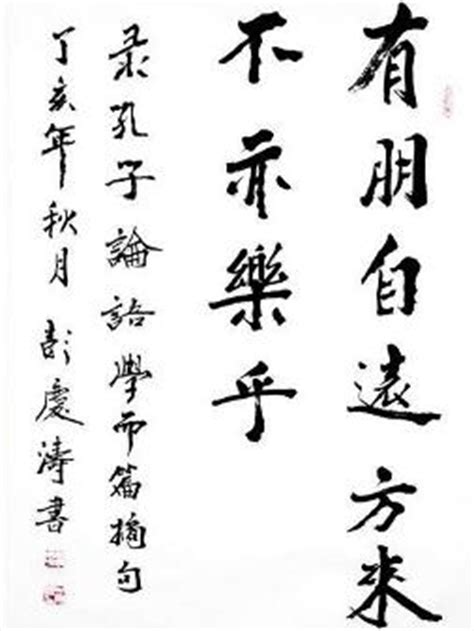 有朋自远方来
不亦樂乎
录孔子論語學而篇摘句
丁亥年秋月彭慶涛書